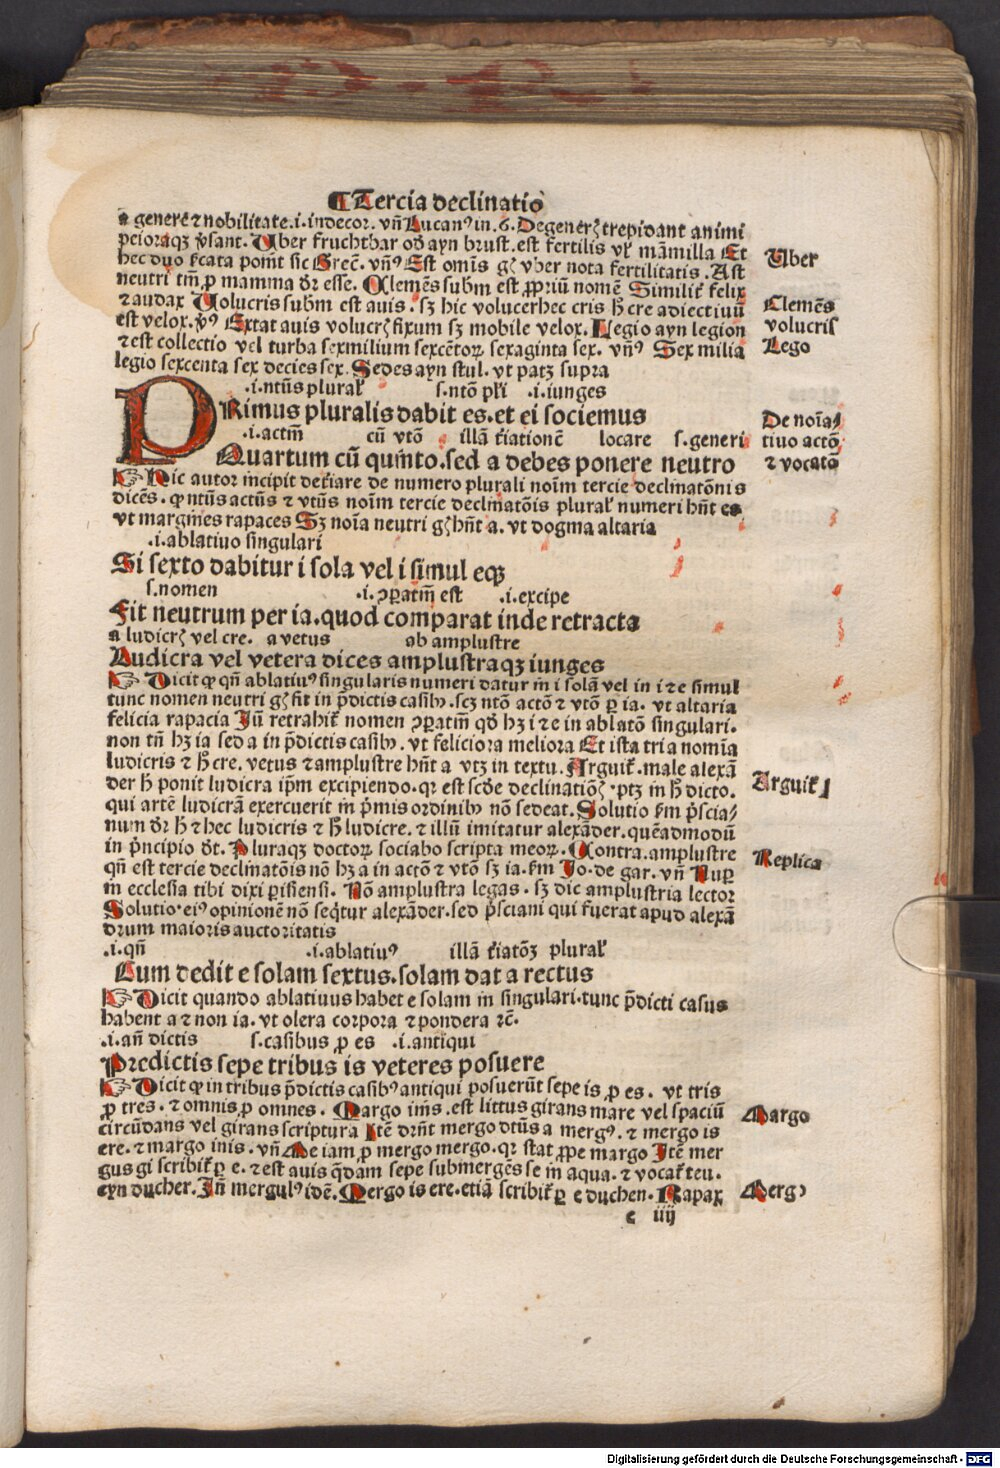 ¶ Tercia declinatio
a generē ⁊ nobilitate .i. indecor. vn̄ Lucanꝰ in .6. Degenerꝫ trepidant animi
pectoraqꝫ v̓sant. Uber fruchtbar od̓ ayn brust. est fertilis vl̓ māmilla Et
hec duo sic Grec̄. vn̄ꝰ Est omīs gꝫ vber nota fertilitatis. Ast
neutri tm̄ ꝓ mamma d̓r esse. Clemēs subm est ꝓpriū nomē Similit̓ felix
⁊ audax Uolucris subm est auis. sꝫ hic volucer hec cris h̄ cre adiectiuū
est velox. v̓ꝰ Extat auis volucrꝫ fixum sꝫ mobile velox. Legio ayn legion
⁊ est collectio vel turba sexmilium sexcētoꝝ sexaginta sex. vn̄ꝰ Sex milia
legio sexcenta sex decies sex. Sedes ayn stul. vt patꝫ supra
Uber
Clemēs
volucris
Lego
.i. ntūs plural̓ s. ntō pl̓i .i. iunges
PRimus pluralis dabit es. et ei sociemus
.i. actm̄ cū vtō illā t̓iationē locare s. generi
Quartum cū quinto. sed a debes ponere neutro
De noīa⸗
tiuo actō
⁊ vocatō
☞ Hic autor incipit det̓iare de numero plurali noīm tercie declinatōnis
dicēs. ꝙ ntūs actūs ⁊ vtūs noīm tercie declinatōis plural̓ numeri hn̄t es
vt margines rapaces Sꝫ noīa neutri gꝫ hn̄t a. vt dogma altaria
.i. ablatiuo singulari
Si sexto dabitur i sola vel i simul eqꝫ
s. nomen .i. ↄꝑatm̄ est .i. excipe
Fit neutrum per ia. quod comparat inde retracta
a ludicrꝫ vel cre. a vetus ab amplustre
Ludicra vel vetera dices amplustraqꝫ iunges
☞ Dicit ꝙ qn̄ ablatiuꝰ singularis numeri datur in i solā vel in i ⁊ e simul
tunc nomen neutri gꝫ fit in p̄dictis casibꝰ. scꝫ ntō actō ⁊ vtō ꝑ ia. vt altaria
felicia rapacia In̄ retrahit̓ nomen ↄꝑatm̄ qd̓ hꝫ i ⁊ e in ablatō singulari.
non tn̄ hꝫ ia sed a in p̄dictis casibꝰ. vt feliciora meliora Et ista tria nomīa
ludicris ⁊ h̄ cre. vetus ⁊ amplustre hn̄t a vtꝫ in textu. Arguit̓. male alexā
der h̄ ponit ludicra ip̄m excipiendo. qꝛ est scd̓e declinatiōꝫ. ptꝫ in h̄ dicto.
qui artē ludicrā exercuerit in p̓mis ordinibꝰ nō sedeat. Solutio km̄ p̓scia⸗
num d̓r h̄ ⁊ hec ludicris ⁊ h̄ ludicre. ⁊ illū imitatur alexāder. quēadmodū
in p̓ncipio d̓t. Pluraqꝫ doctoꝝ sociabo scripta meoꝝ. Contra. amplustre
qn̄ est tercie declinatōis nō hꝫ a in actō ⁊ vtō sꝫ ia. km̄ Jo. de gar. vn̄ Nuꝑ
in ecclesia tibi dixi ꝑisiensi. Nō amplustra legas. sꝫ dic amplustria lector
Solutio. eiꝰ opinionē nō seq̓tur alexāder. sed p̓sciani qui fuerat apud alexā
drum maioris auctoritatis
Arguit̓
Replica
.i. qn̄ .i. ablatiuꝰ illā t̓iatōꝫ plural̓
Cum dedit e solam sextus. solam dat a rectus
☞ Dicit quando ablatiuus habet e solam in singulari. tunc p̄dicti casus
habent a ⁊ non ia. vt olera corpora ⁊ pondera ⁊c̄.
.i. an̄ dictis s. casibus ꝓ es .i. antiqui
Predictis sepe tribus is veteres posuere
☞ Dicit ꝙ in tribus p̄dictis casibꝰ antiqui posuerūt sepe is ꝓ es. vt tris
ꝓ tres. ⁊ omnis ꝓ omnes. Margo inīs. est littus girans mare vel spaciū
circūdans vel girans scriptura Itē drn̄t mergo dtūs a mergꝰ. ⁊ mergo is
ere. ⁊ margo inis. vn̄ Me iam ꝓ mergo mergo. qꝛ stat ꝓpe margo Itē mer
gus gi scribit̓ ꝑ e. ⁊ est auis q̄dam sepe submergēs se in aqua. ⁊ vocat̓ teu.
eyn ducher. In̄ mergulꝰ idē. Mergo is ere. etiā scribit̓ ꝑ e duchen. Rapax
Margo
Mergꝰ
e iiij
Digitalisierung gefördert durch die Deutsche Forschungsgemeinschaft - DFG